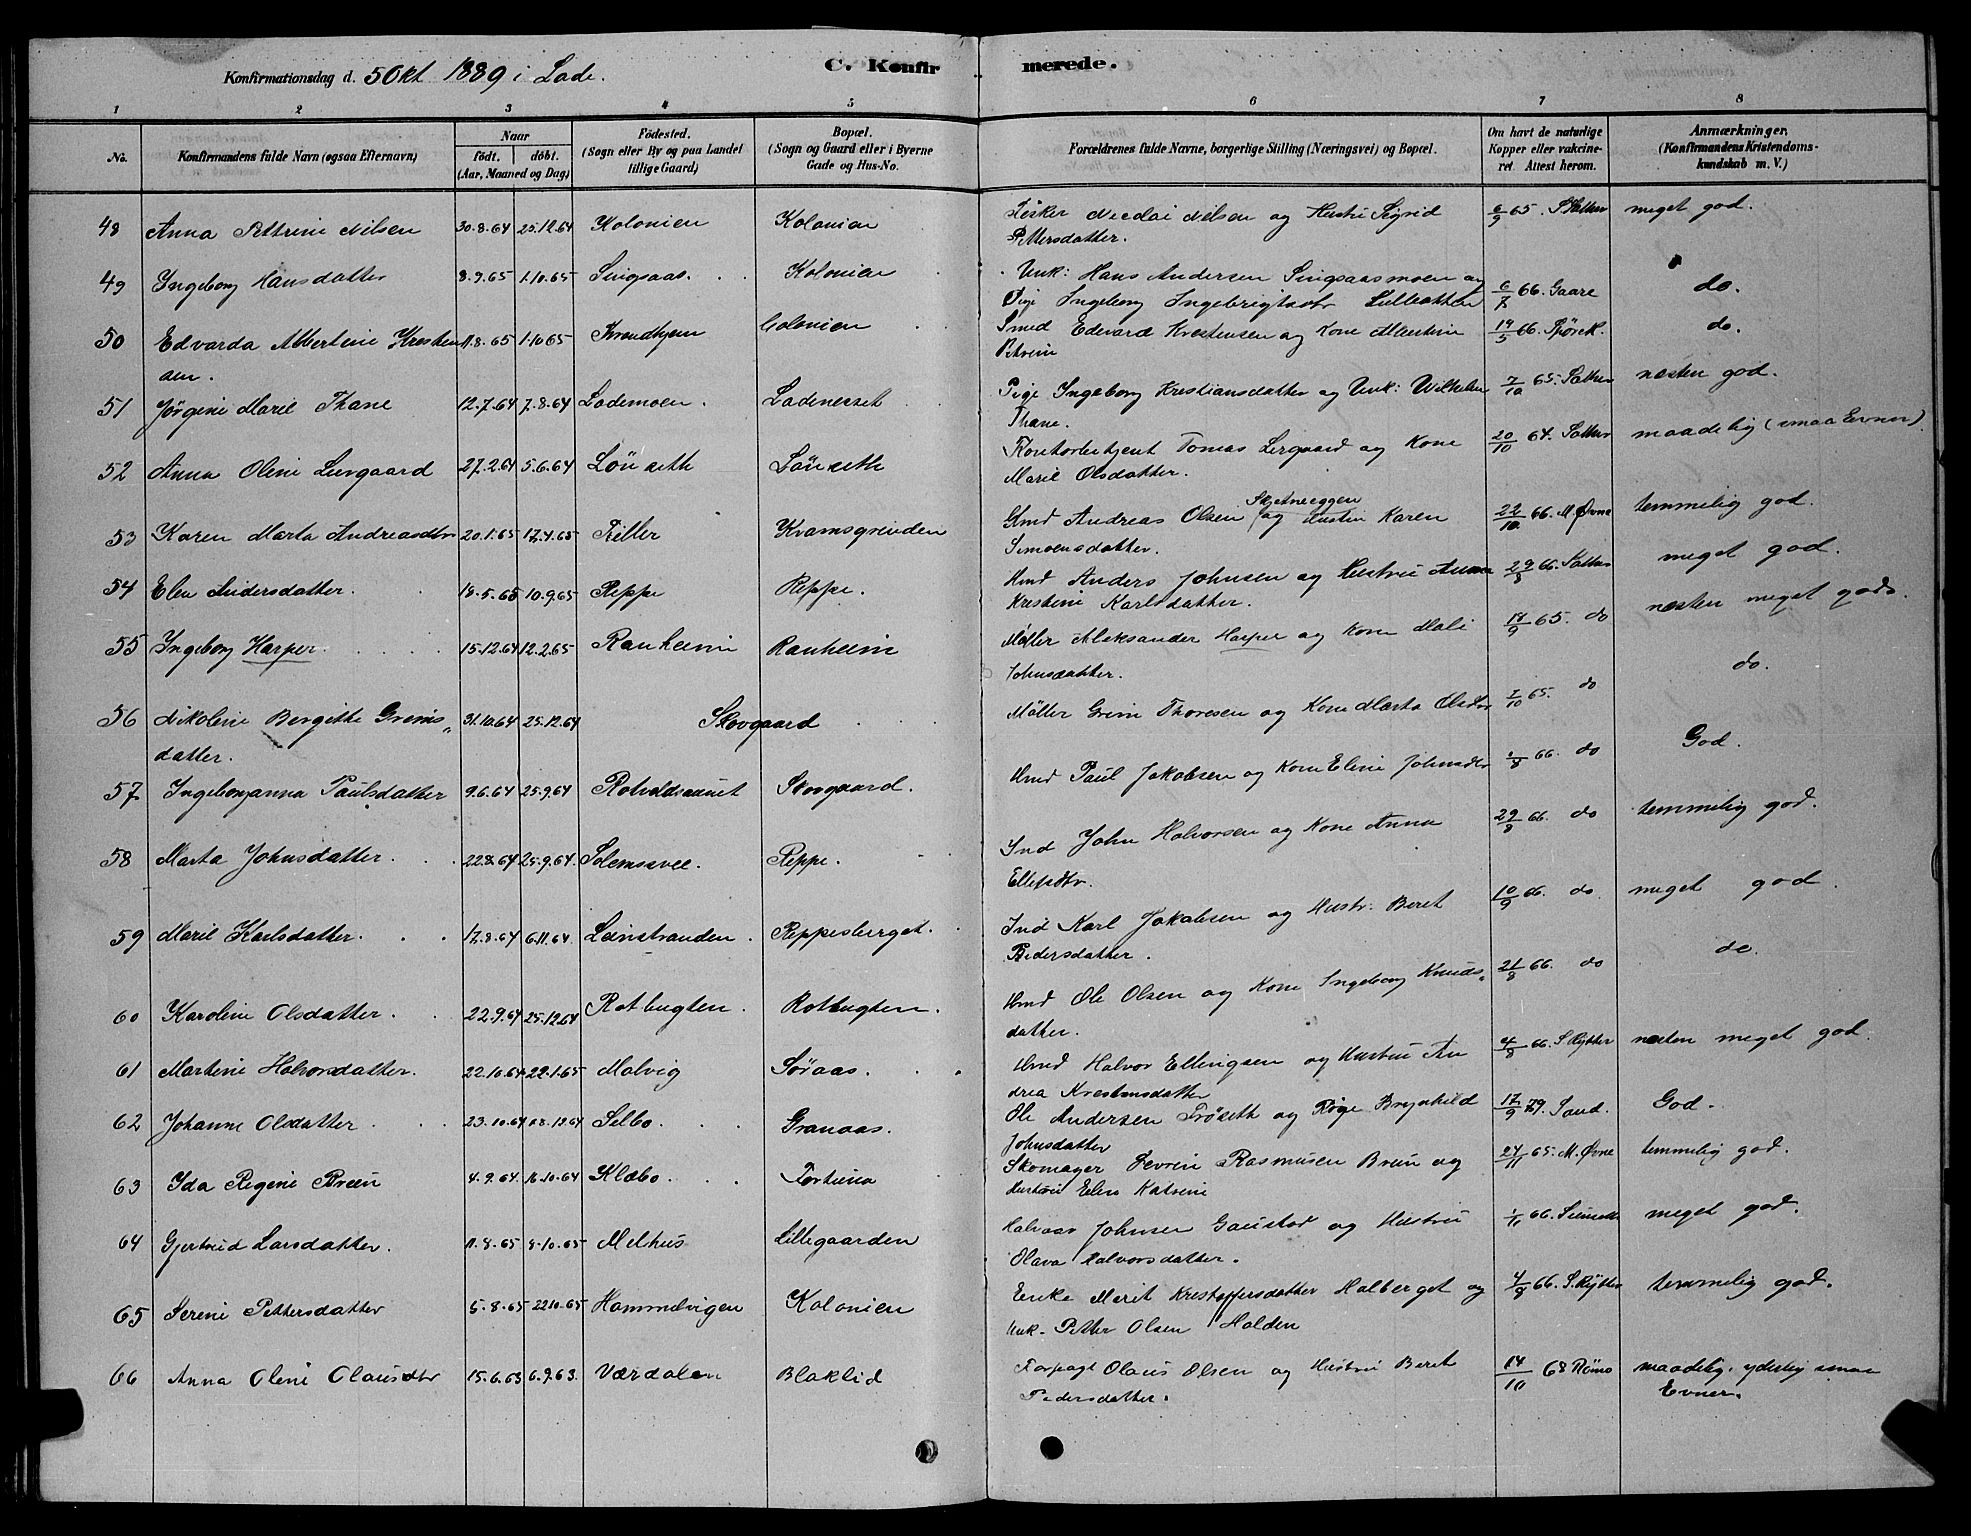 Konfirmationsdag d. 5 Okt 1889 i Lade.
C. Konfirmerede.
1 2 3 4 5 6 7 8
No.
Konfirmandens fulde Navn (ogsaa Efternavn)
Naar
födt. döbt.
(Aar, Maaned og Dag)
Födested.
(Sogn eller By og paa Landet
tillige Gaard)
Bopæl.
(Sogn og Gaard eller i Byerne
Gade og Hus-No.
Forældrenes fulde Navne, borgerlige Stilling (Næringsvei) og Bopæl.
Om havt de naturlige
Kopper eller vakcine-
ret. Attest herom.
Anmærkninger.
(Konfirmandens Kristendoms-
kundskab m. V.)
48 Anna Petrine Nilsen 30.8.64 25.12.64 Kolonien Kolonien Fisker Nicolai Nilsen og Hustru Sigrid 6/9 65. meget god.
Pettersdatter.
49 Ingeborg Hansdatter 8.9.65 1.10.65 Singsaas Kolonien Unk: Hans Andersen Singsaasmoen og 6/7 66. Gaare do.
Pige Ingeborg Ingebrigtsdtr
50 Edvarda Albertine Kresten 11.8.65 1.10.65 Trondhjem Colonien Smed Edvard Krestensen og Kone Martine 19/5 66. do.
sen. Petrine
51 Jörgine Marie Thane 12.7.64 7.8.64 Lademoen. Ladenesset Pige Ingeborg Kristiansdatter og Unk: Wilhelm 7/10 65. næsten god.
Thane.
52 Anna Oline Lergaard 27.2.64 5.6.64 Lönseth Lönseth Tomas Lergaard og Kone 20/10 64. maadelig (smaa Evner).
Marie Olsdatter.
53 Karen Marta Andreasdtr 20.1.65 17.4.65 Tiller Kvamsgrinden Hmd Andreas Olsen Skjetneeggen og Hustru Karen 22/10 66. M Øvne temmelig god.
Simoensdatter.
54 Elen Andersdatter. 18.5.65 10.9.65 Reppe Reppe. Hmd Anders Johnsen og Hustru Anna 29/8 66. meget god.
Krestine Karlsdatter.
55 Ingeborg Harper. 15.12.64 12.2.65 Ranheim Ranheim Møller Aleksander Harper og Kone Mali 18/9 65. do næsten meget god.
Johnsdatter.
56 Nikoline Bergitte Grims„ 31.10.64 25.12.64 Skovgaard Möller Grim Thoresen og Kone Marta Olsdtr 65. do do.
datter.
57 Ingeborganna Paulsdatter 9.6.64 25.9.64 Skovgaard. Hmd Paul Jakobsen og Kone Eline Johnsdtr 66. do God.
58 Marta Johnsdatter. 22.8.64 25.9.64. Solemsvee. Reppe. Ind John Halvorsen og Kone Anna 29/8 66. do temmelig god.
Ellefsdtr.
59 Marie Karlsdatter. 17.8.64 6.11.64. Leinstranden. Reppesberget. Ind Karl Jakobsen og Hustr. Beret 10/9 66. do. meget god.
Pedersdatter.
60 Karoline Olsdatter. 22.9.64 25.12.64 Rotbugten. Rotbugten. Hmd Ole Olsen og Kone Ingeborg Knuds„ 21/8 66. do do.
datter.
61 Martine Halvorsdatter. 22.10.64 22.1.65 Malvig Søraas. Hmd Halvor Ellingsen og Hustru An 4/8 66. S. Rytter næsten meget god.
drea Krestensdatter
62 Johanne Olsdatter. 23.10.64 18.12.64 Selbo. Granaas. Ole Andersen Fröseth og Pige Brynhild 17/9 79. Sand. God.
Johnsdatter
63 Ida Regine Breen 4.9.64. 16.10.64 Klæbo. Fortuna Skomager Sevrin Rasmusen Breen og 24/11 65. M. Øvne temmelig god.
Hustru Elen Katrine
64 Gjertrud Larsdatter. 11.8.65 8.10.65 Melhus Lillegaarden Halvor Johnsen Gaustad og Hustru 66. meget god.
Olava Halvorsdatter.
65 Serine Pettersdatter 5.8.65 22.10.65 Hommelvigen Kolonien Enke Merit Krestoffersdatter Halberget og 4/8 66. S. Rytter temmelig god.
Unk. Petter Olsen Holden
66 Anna Oline Olausdtr 15.6.63 6.9.63. Værdalen Blaklid Forpagt Olaus Olsen og Hustru Beret 14/10 68 Römo maadelig. yderlig smaa
Pedersdatter. Evner.